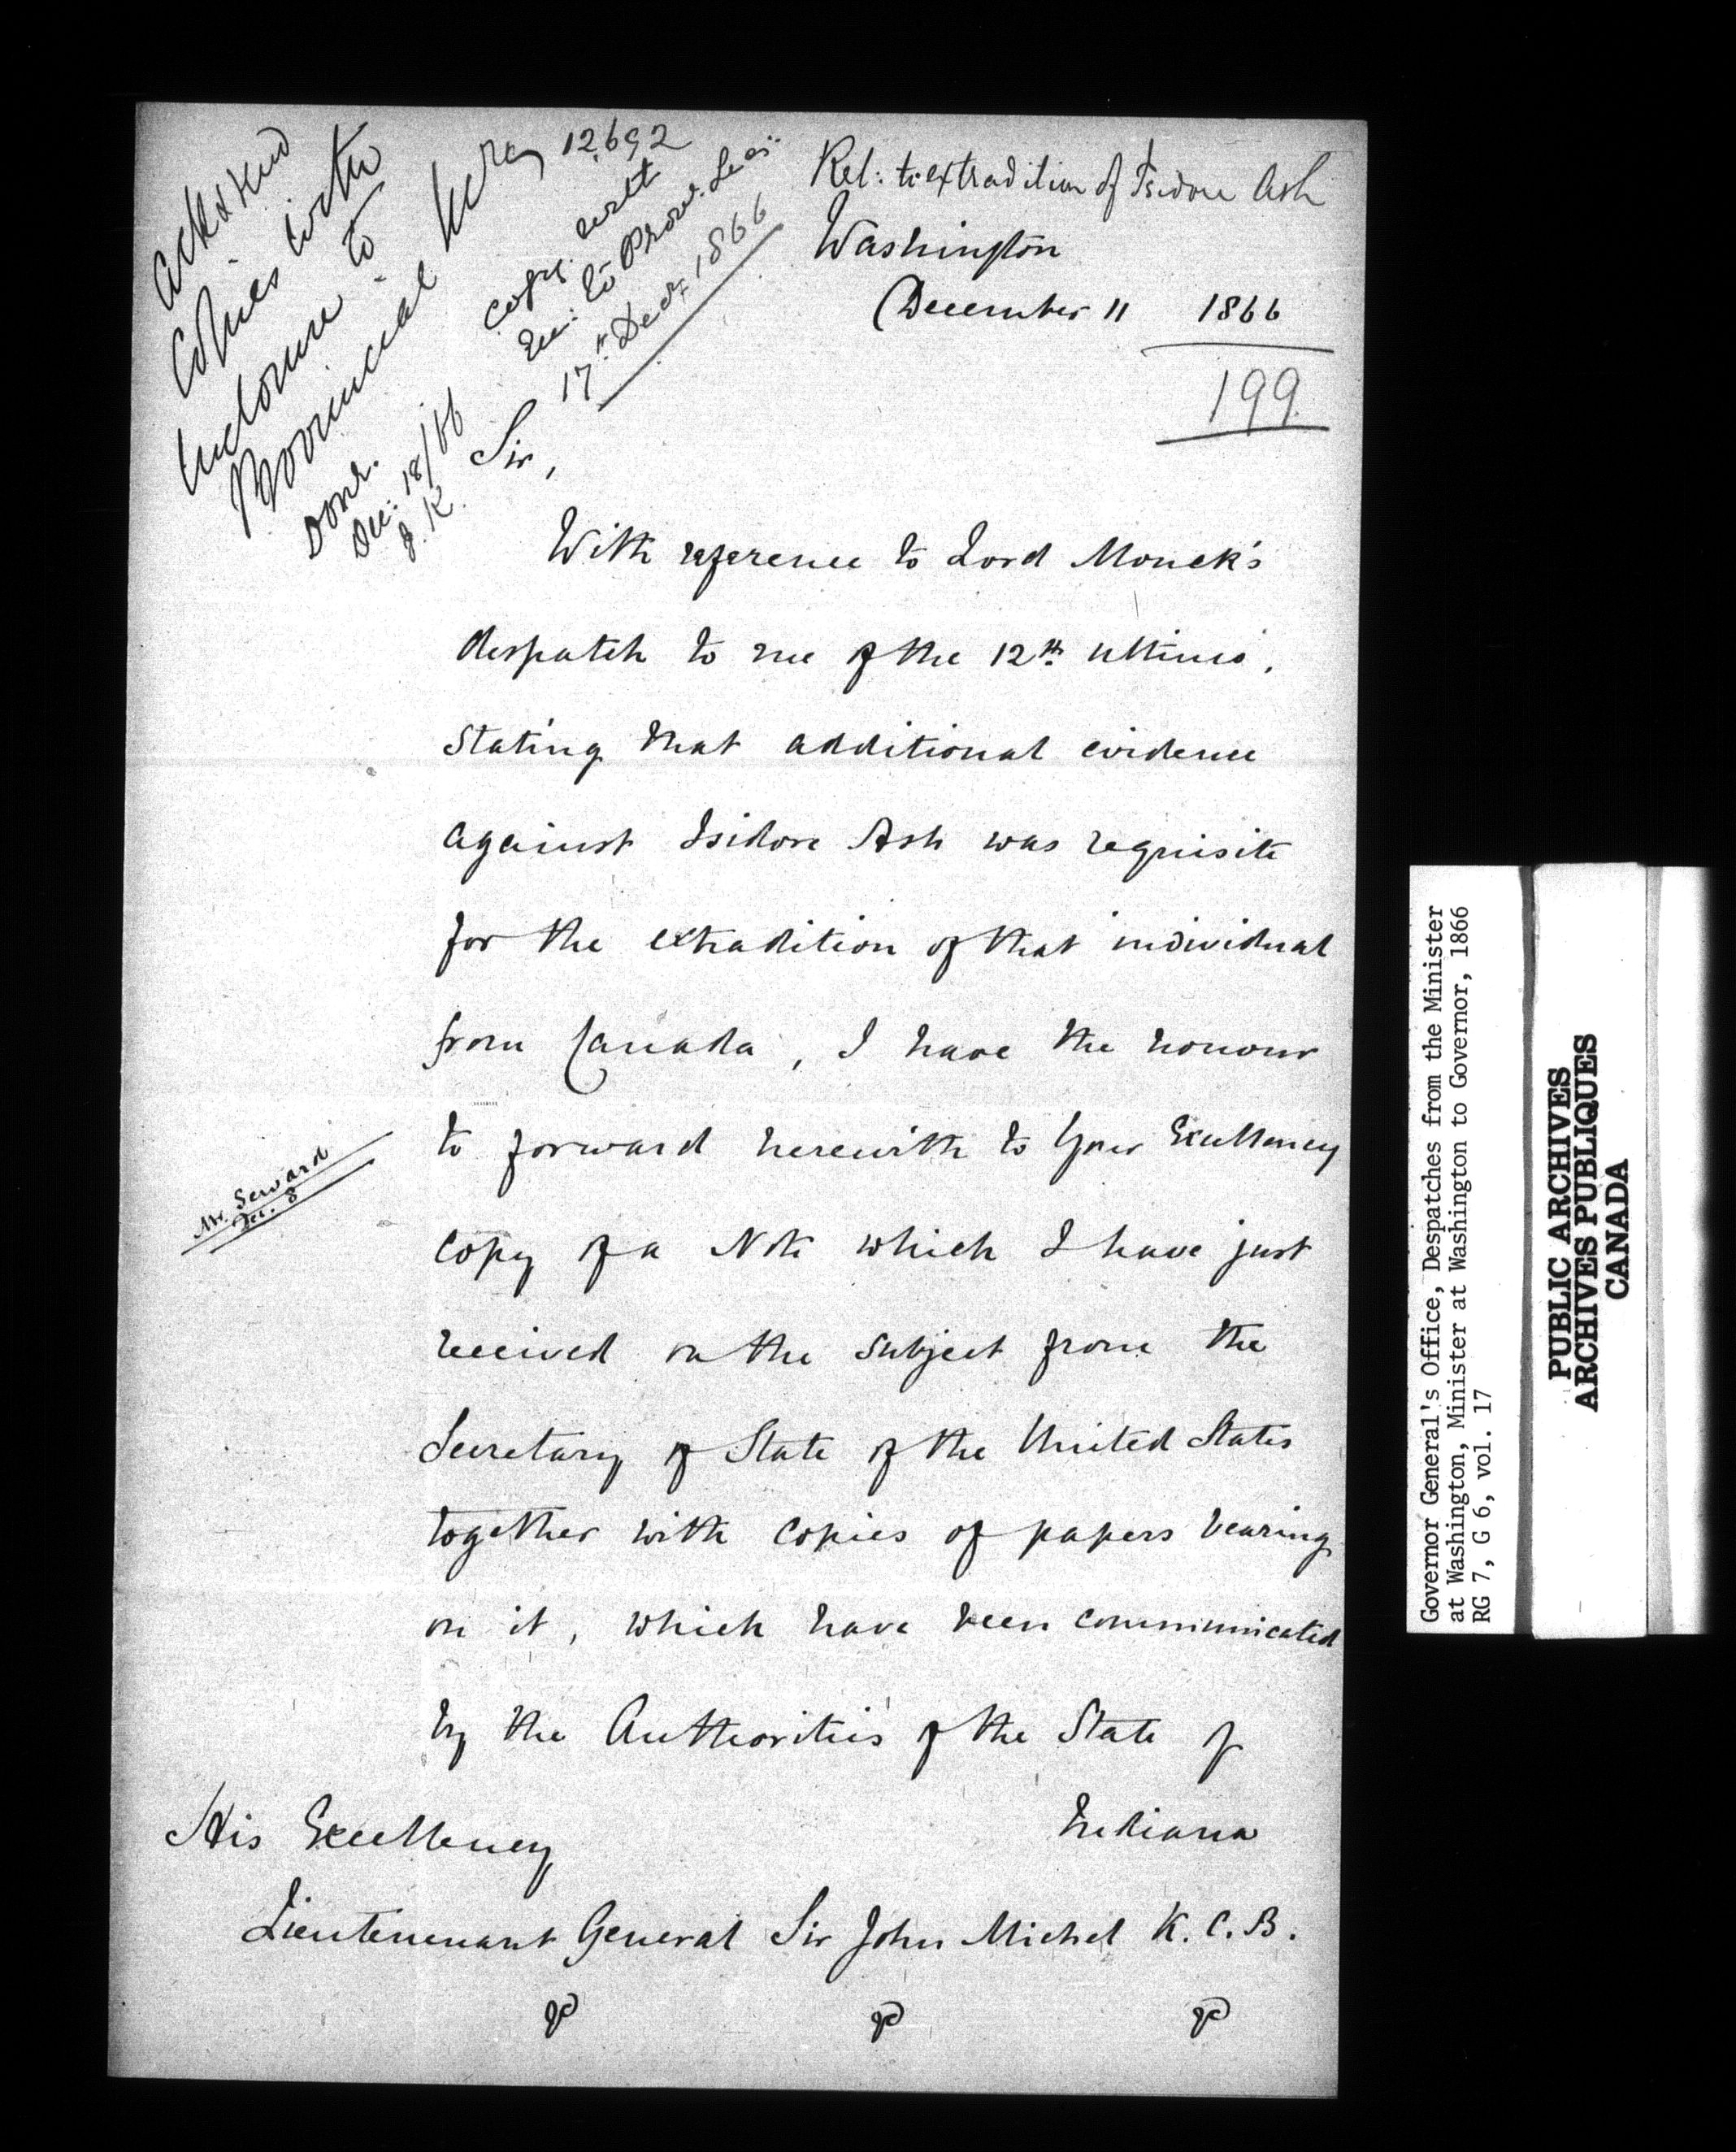 12692
Ack & send
copies with
inclosure to
Provincial Secy
Done.
Dec: 18/66
J. K.
Copy. with
Enc: to Prov. Sec:
17th Decr 1866
Rel: to extradition of Isidore Ash
Washington
December 11 1866
199
Sir,
With reference to Lord Monck's
despatch to me of the 12th ultimo,
stating that additional evidence
against Isidore Ash was requisite
for the extradition of that individual
from Canada, I have the honour
to forward herewith to Your Excellency
Mr. Seward
Dec. 8
copy of a Note which I have just
received on the subject from the
Secretary of State of the United States
together with copies of papers bearing
on it, which have been communicated
by the Authorities of the State of
Indiana
His Excellency
Lieutenant General Sir John Michel K.C.B.
Governor General's Office, Despatches from the Minister
at Washington, Minister at Washington to Governor, 1866
RG 7, G 6, vol. 17
PUBLIC ARCHIVES
ARCHIVES PUBLIQUES
CANADA